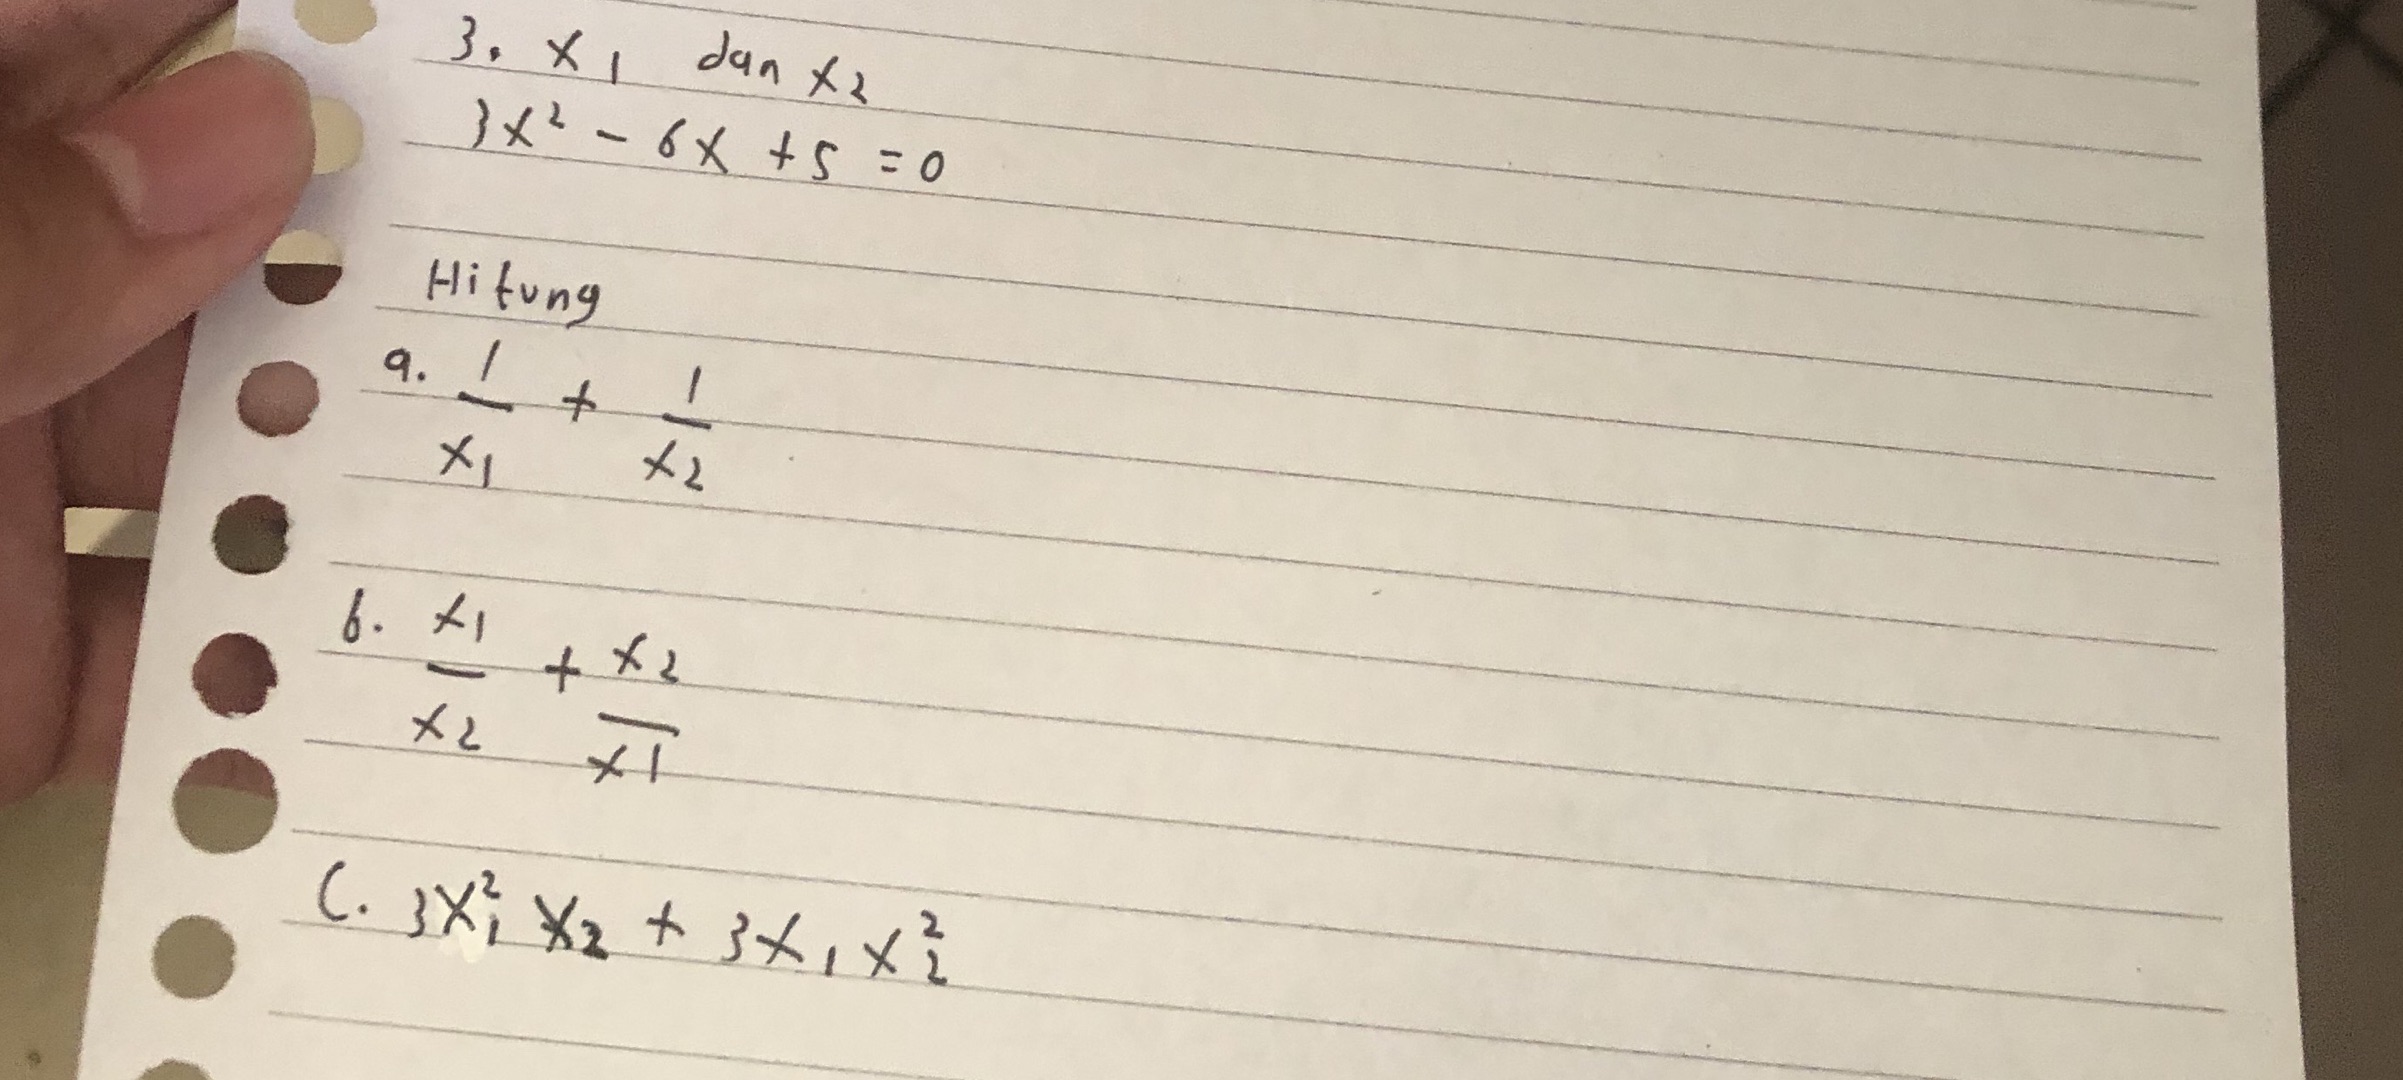 3. x₁ dan x₂
3x² - 6x + 5 = 0
Hitung
a. 1/x₁ + 1/x₂
b. x₁/x₂ + x₂/x1
C. 3x₁² x₂ + 3x₁ x₂²